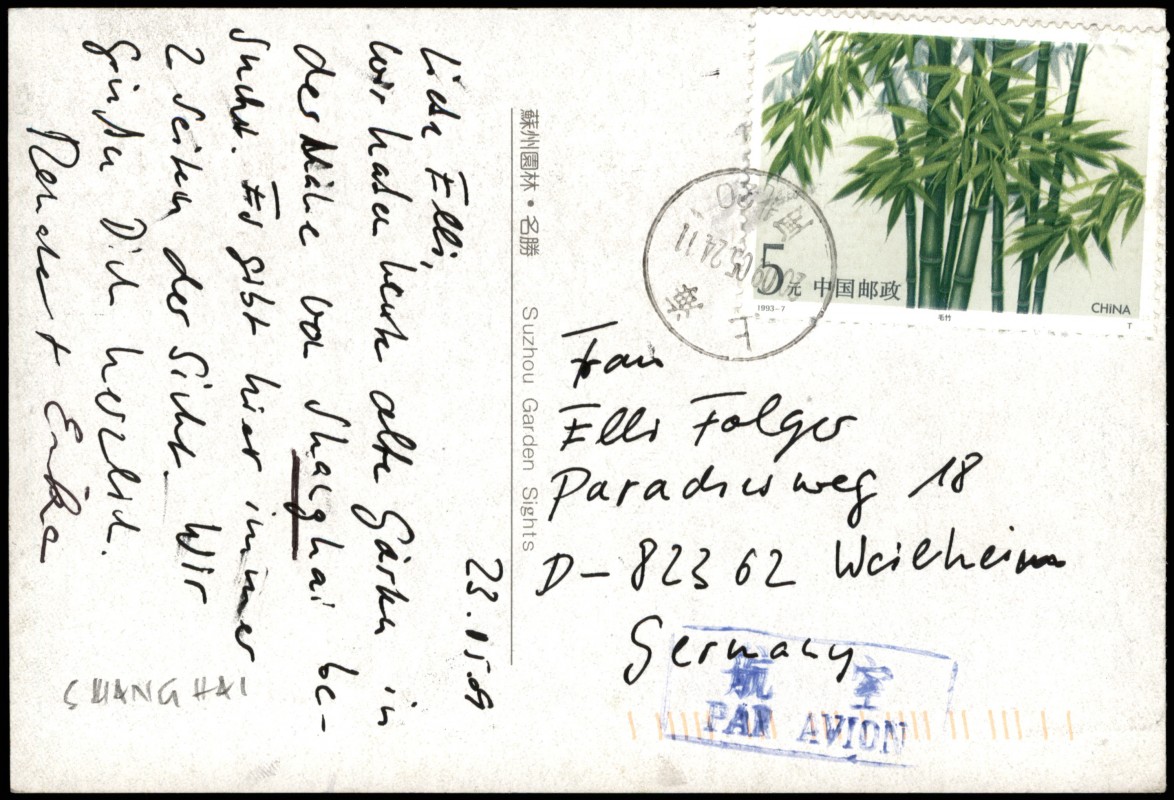 23.05.09
Liebe Elli,
wir haben heute alte Gärten in
der Nähe von Shanghai be-
sucht. Es gibt hier immer
2 Seiten der Sicht. Wir
grüßen Dich herzlich.
Renate + Erika
SHANGHAI
蘇州園林•名勝 Suzhou Garden Sights
5元 中国邮政
1993-7 毛竹 CHINA T
上海
05.24.11
Frau
Elli Folger
Paradiesweg 18
D-82362 Weilheim
Germany
航空
PAR AVION